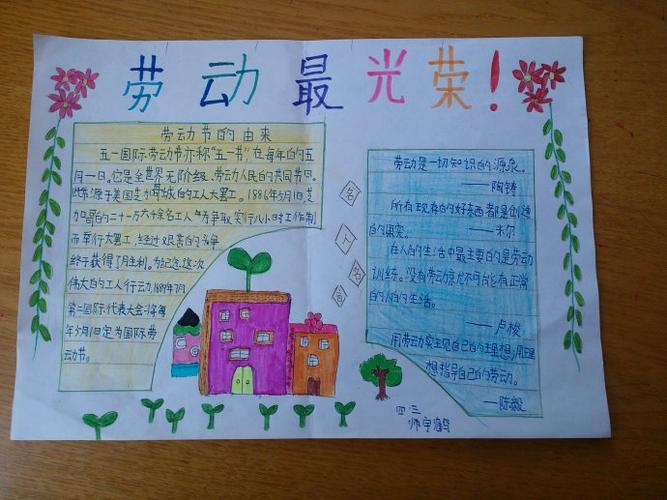 劳动最光荣!
劳动节的由来
五一国际劳动节亦称“五一节”,在每年的五
月一日。它是全世界无阶级、劳动人民的共同节日。
此节源于美国芝加哥城的工人大罢工。1886年5月1日,芝
加哥的二十一万六千余名工人为争取实行八小时工作制
而举行大罢工,经过艰苦的斗争
终于获得了月生利。为纪念这次
伟大的工人行动,1889年7月
第二国际代表大会
年5月1日定为国际劳
动节。
名
人
名
言
劳动是一切知识的源泉。
——陶铸
所有现存的好东西都是创造
的果实。
——米尔
在人的生活中最主要的是劳动
训练。没有劳动就不可能有正常
的人的生活。
——卢梭
用劳动实现自己的理想,用理
想指导自己的劳动。
——陈毅
四三
师宇